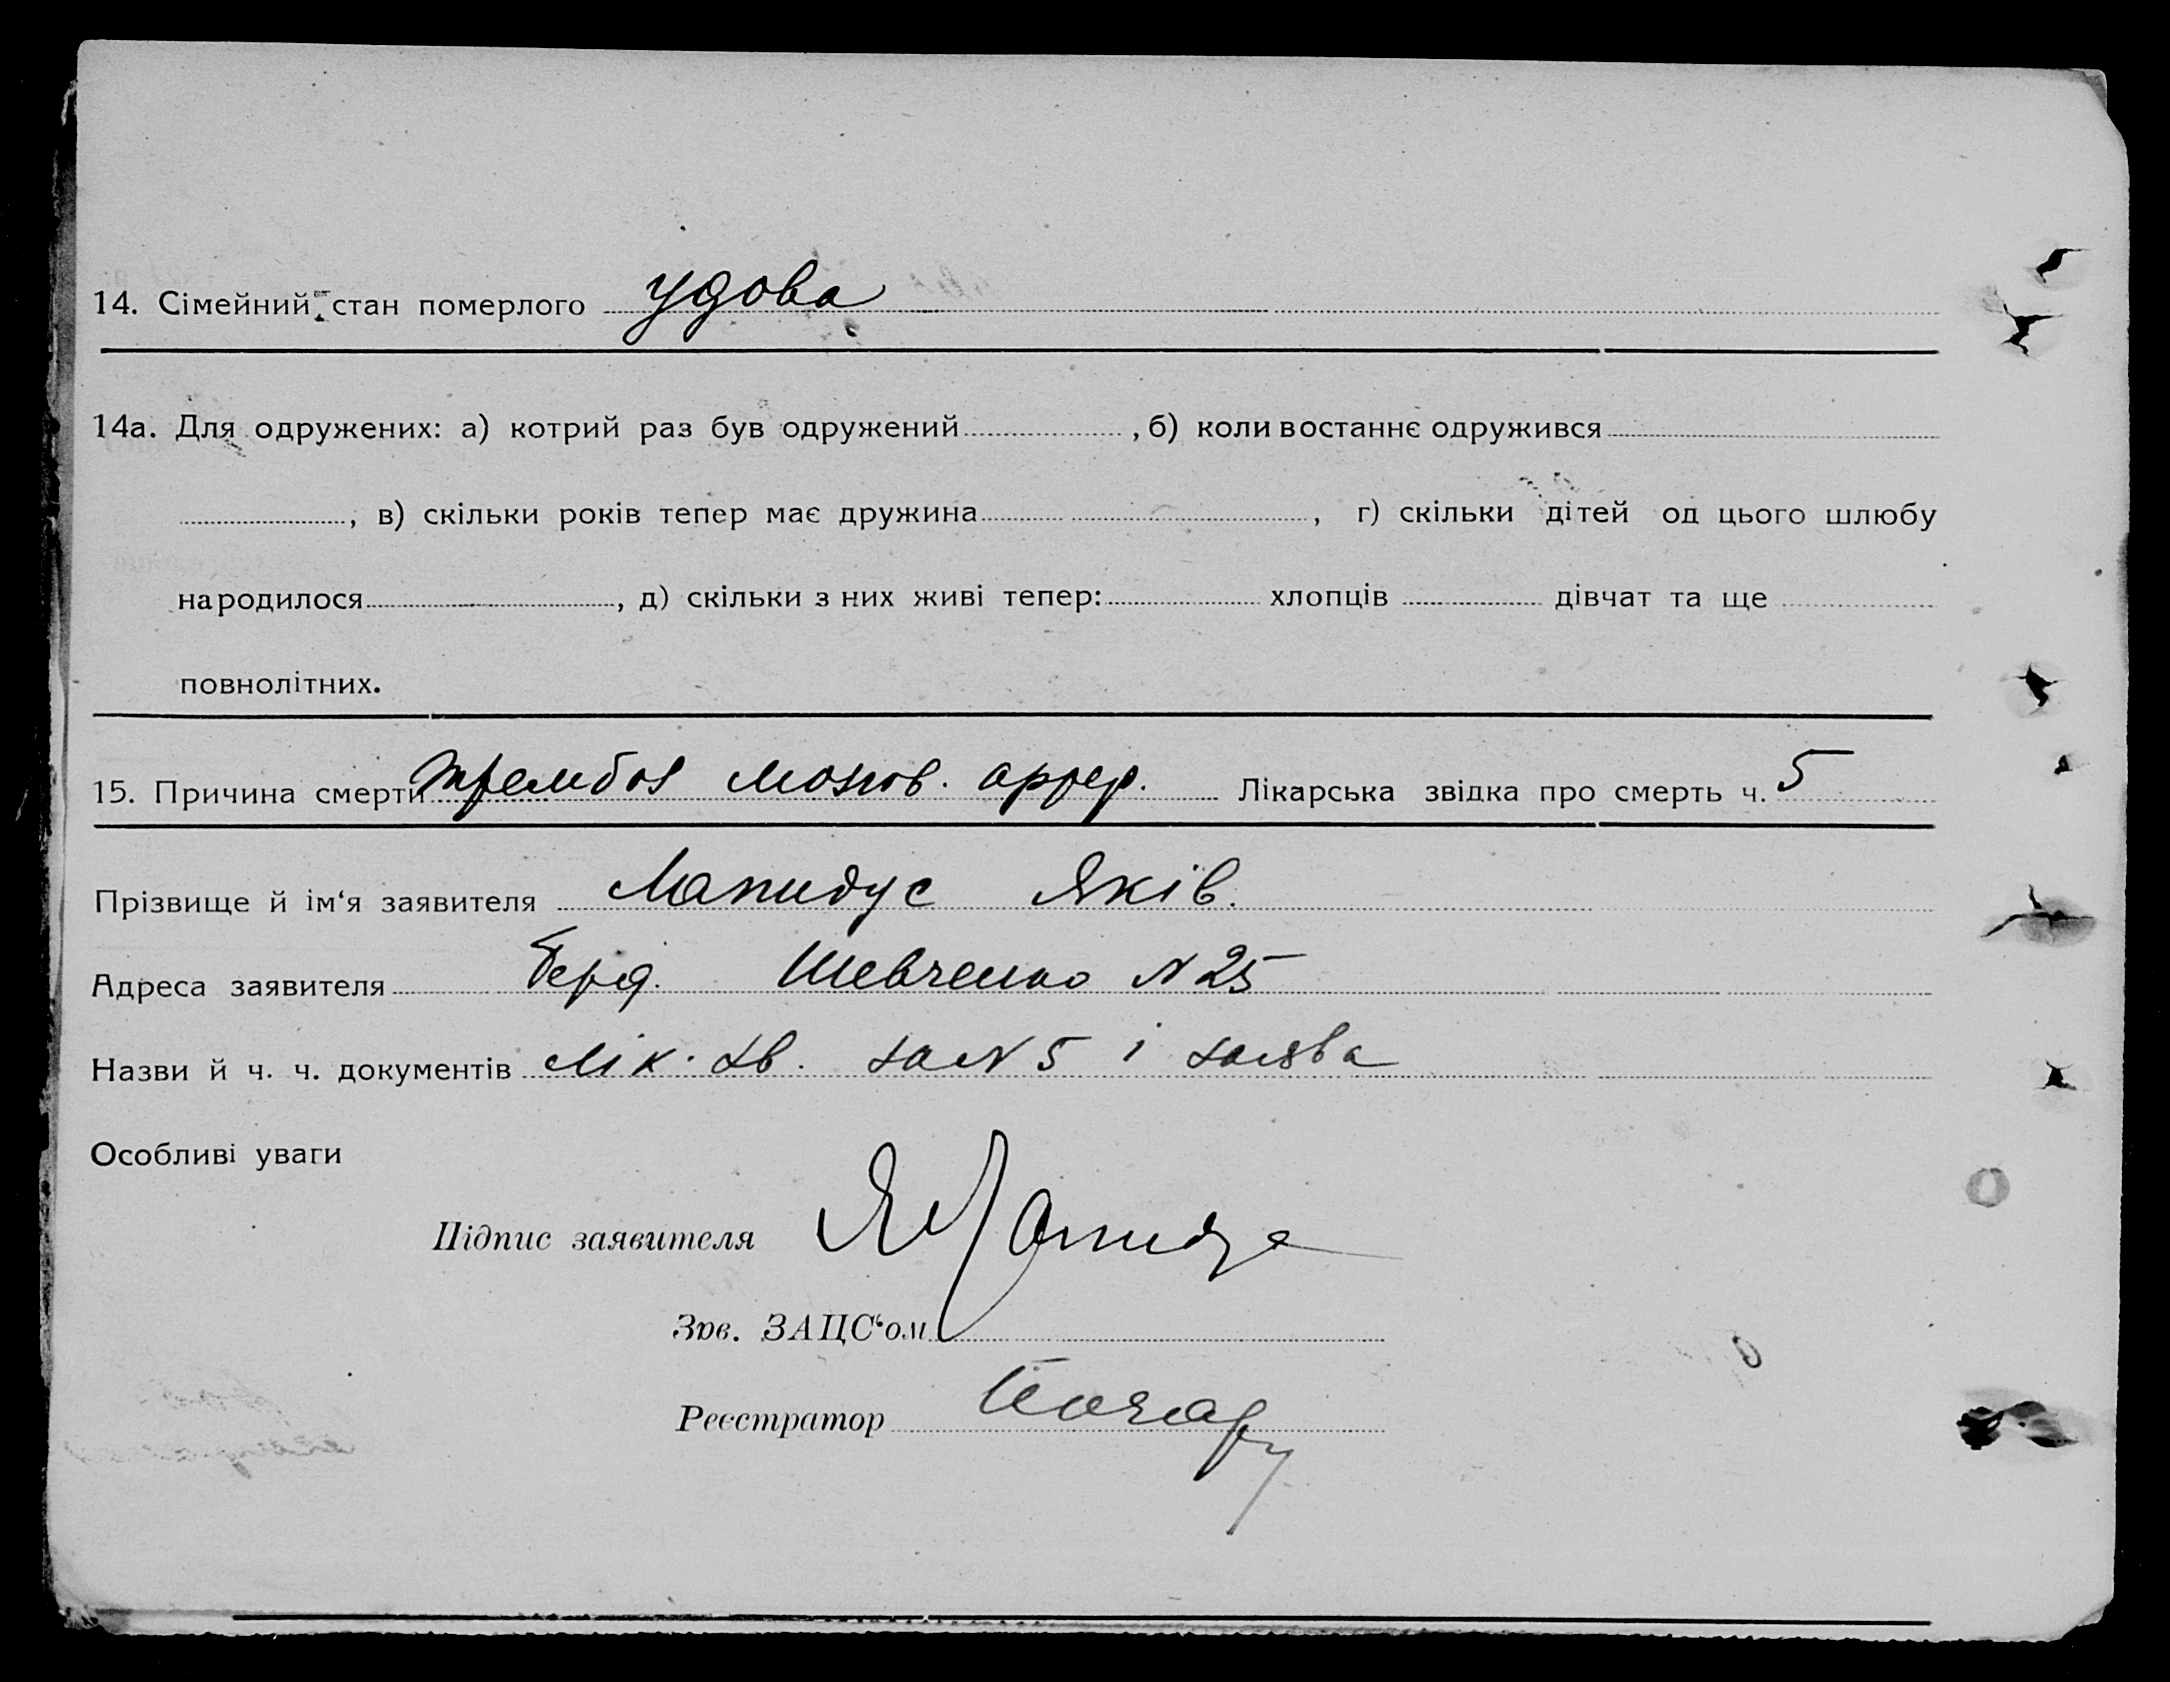 14. Сімейний стан померлого удова
14а. Для одружених: а) котрий раз був одружений , б) коли востаннє одружився
, в) скільки років тепер має дружина , г) скільки дітей од цього шлюбу
народилося , д) скільки з них живі тепер: хлопців дівчат та ще
повнолітних.
15. Причина смерти мозков. Лікарська звідка про смерть ч. 5
Прізвище й ім‘я заявителя Лапидус Яків.
Адреса заявителя Берд. Шевченко N 25
Назви й ч. ч. документів Лік. зв. за N 5 і заява
Особливі уваги
Підпис заявителя Я Лапидус
Зав. ЗАЦС‘ом
Реєстратор